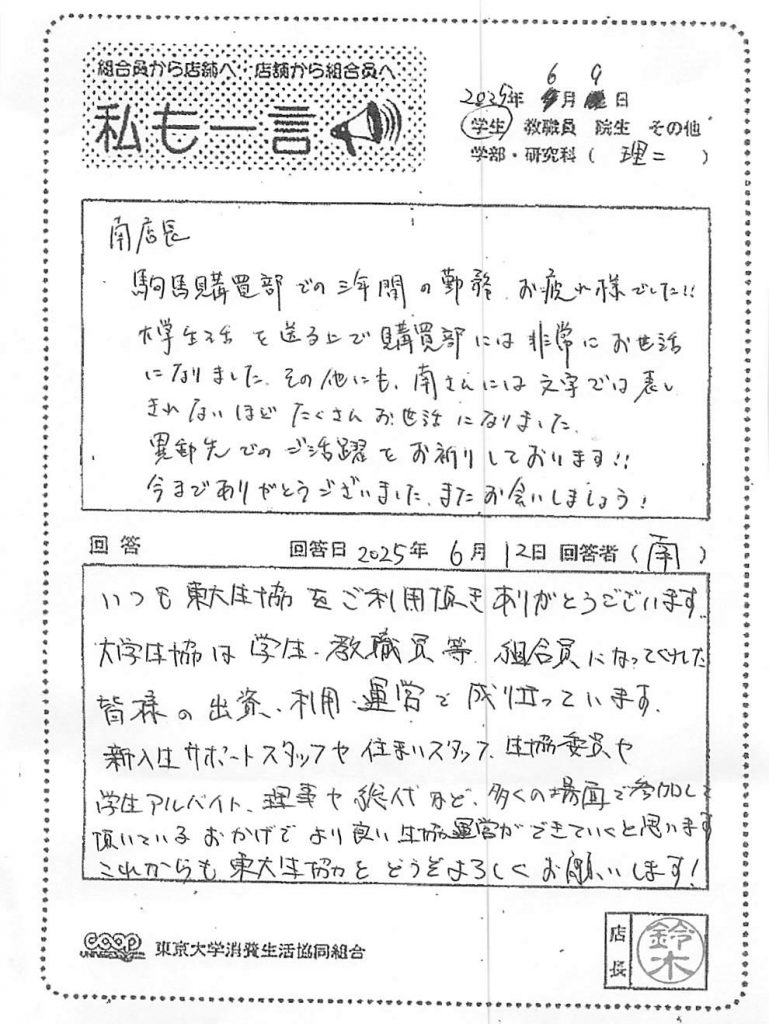 組合員から店舗へ・店舗から組合員へ
私も一言
2025年 6月 9日
学生 教職員 院生 その他
学部・研究科( 理二 )
南店長
駒場購買部での三年間の勤務、お疲れ様でした!!
大学生活を送る上で購買部には非常にお世話
になりました。その他にも、南さんには文字では表し
きれないほどたくさんお世話になりました。
異動先でのご活躍をお祈りしております!!
今までありがとうございました。またお会いしましょう!
回答 回答日 2025年 6月 12日 回答者(南)
いつも東大生協をご利用頂きありがとうございます。
大学生協は学生・教職員等、組合員になってくれた
皆様の出資、利用、運営で成り立っています。
新入生サポートスタッフや住まいスタッフ、生協委員や
学生アルバイト、理事や総代など、多くの場面で参加して
頂いているおかげでより良い生協運営ができていくと思います
これからも東大生協をどうぞよろしくお願いします!
coop 東京大学消費生活協同組合
店長 鈴木